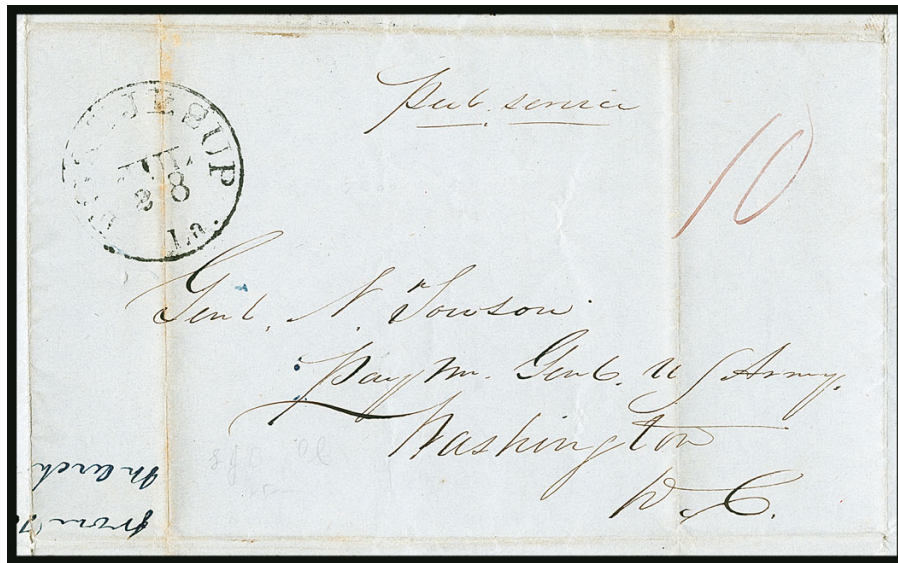 FORT JESUP
JUL
28
La.
Pub. service
10
Genl. N. Towson.
Pay M. Genl. U S Army.
Washington
D. C.
March
from